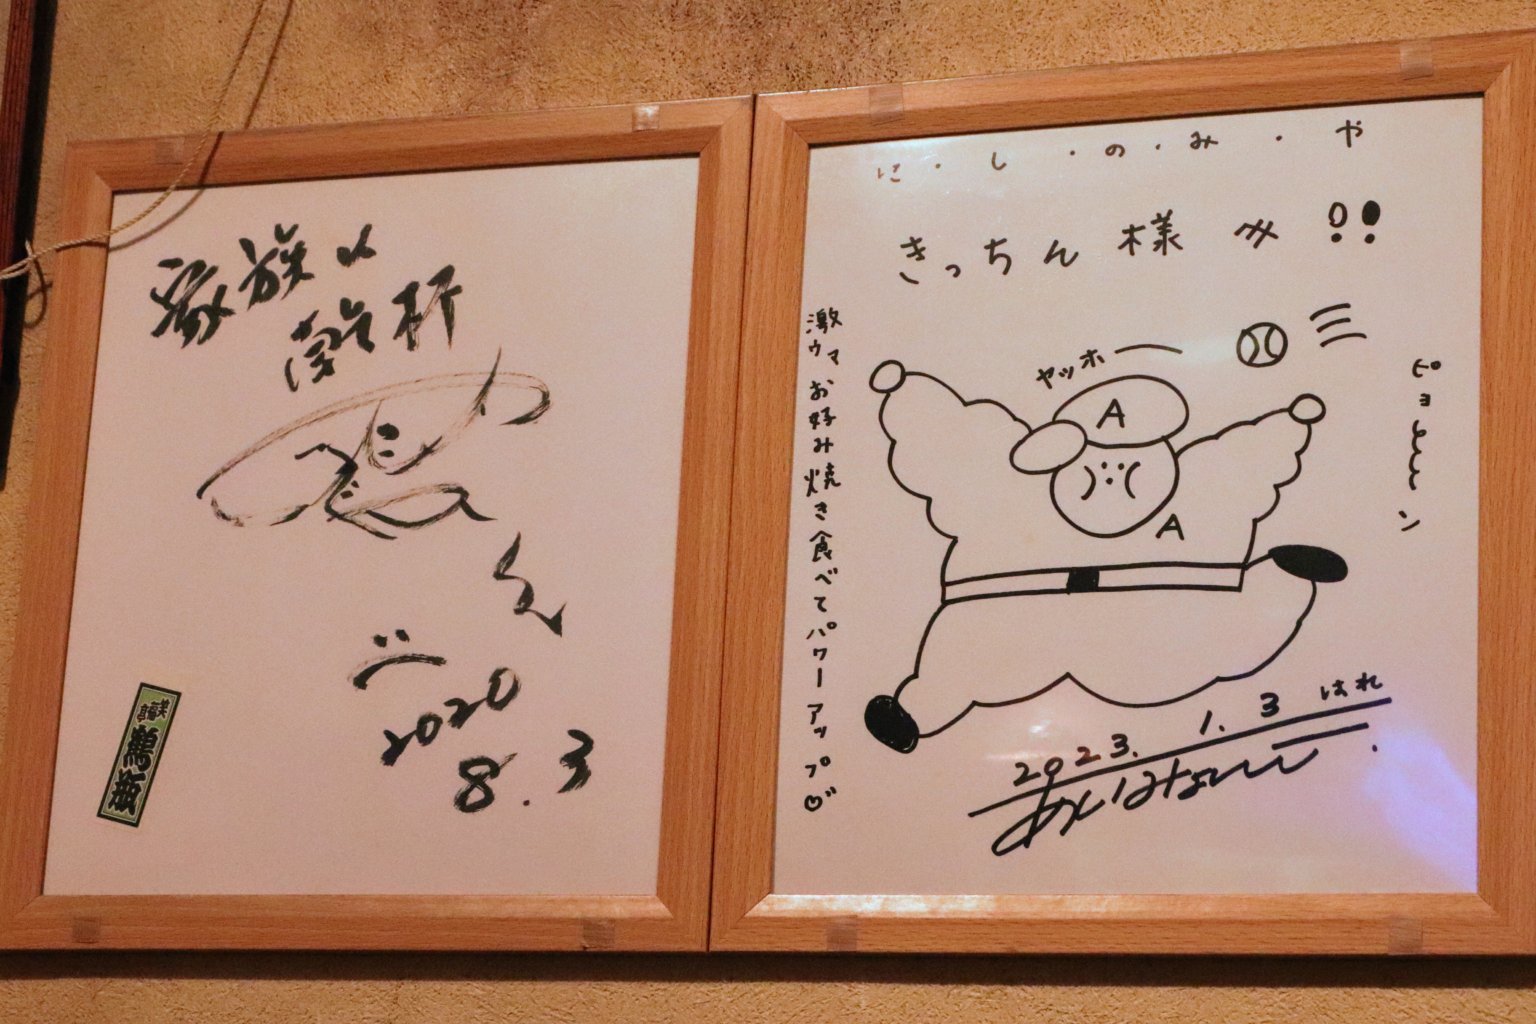 家族に
乾杯
2020
8.3
笑福亭
鶴瓶
に・し・の・み・や
きっちん様 江 !!
激ウマ お好み焼き食べてパワーアップ♡
ヤッホー
A
A
ピョーーン
2023. 1. 3 はれ
あいはなー